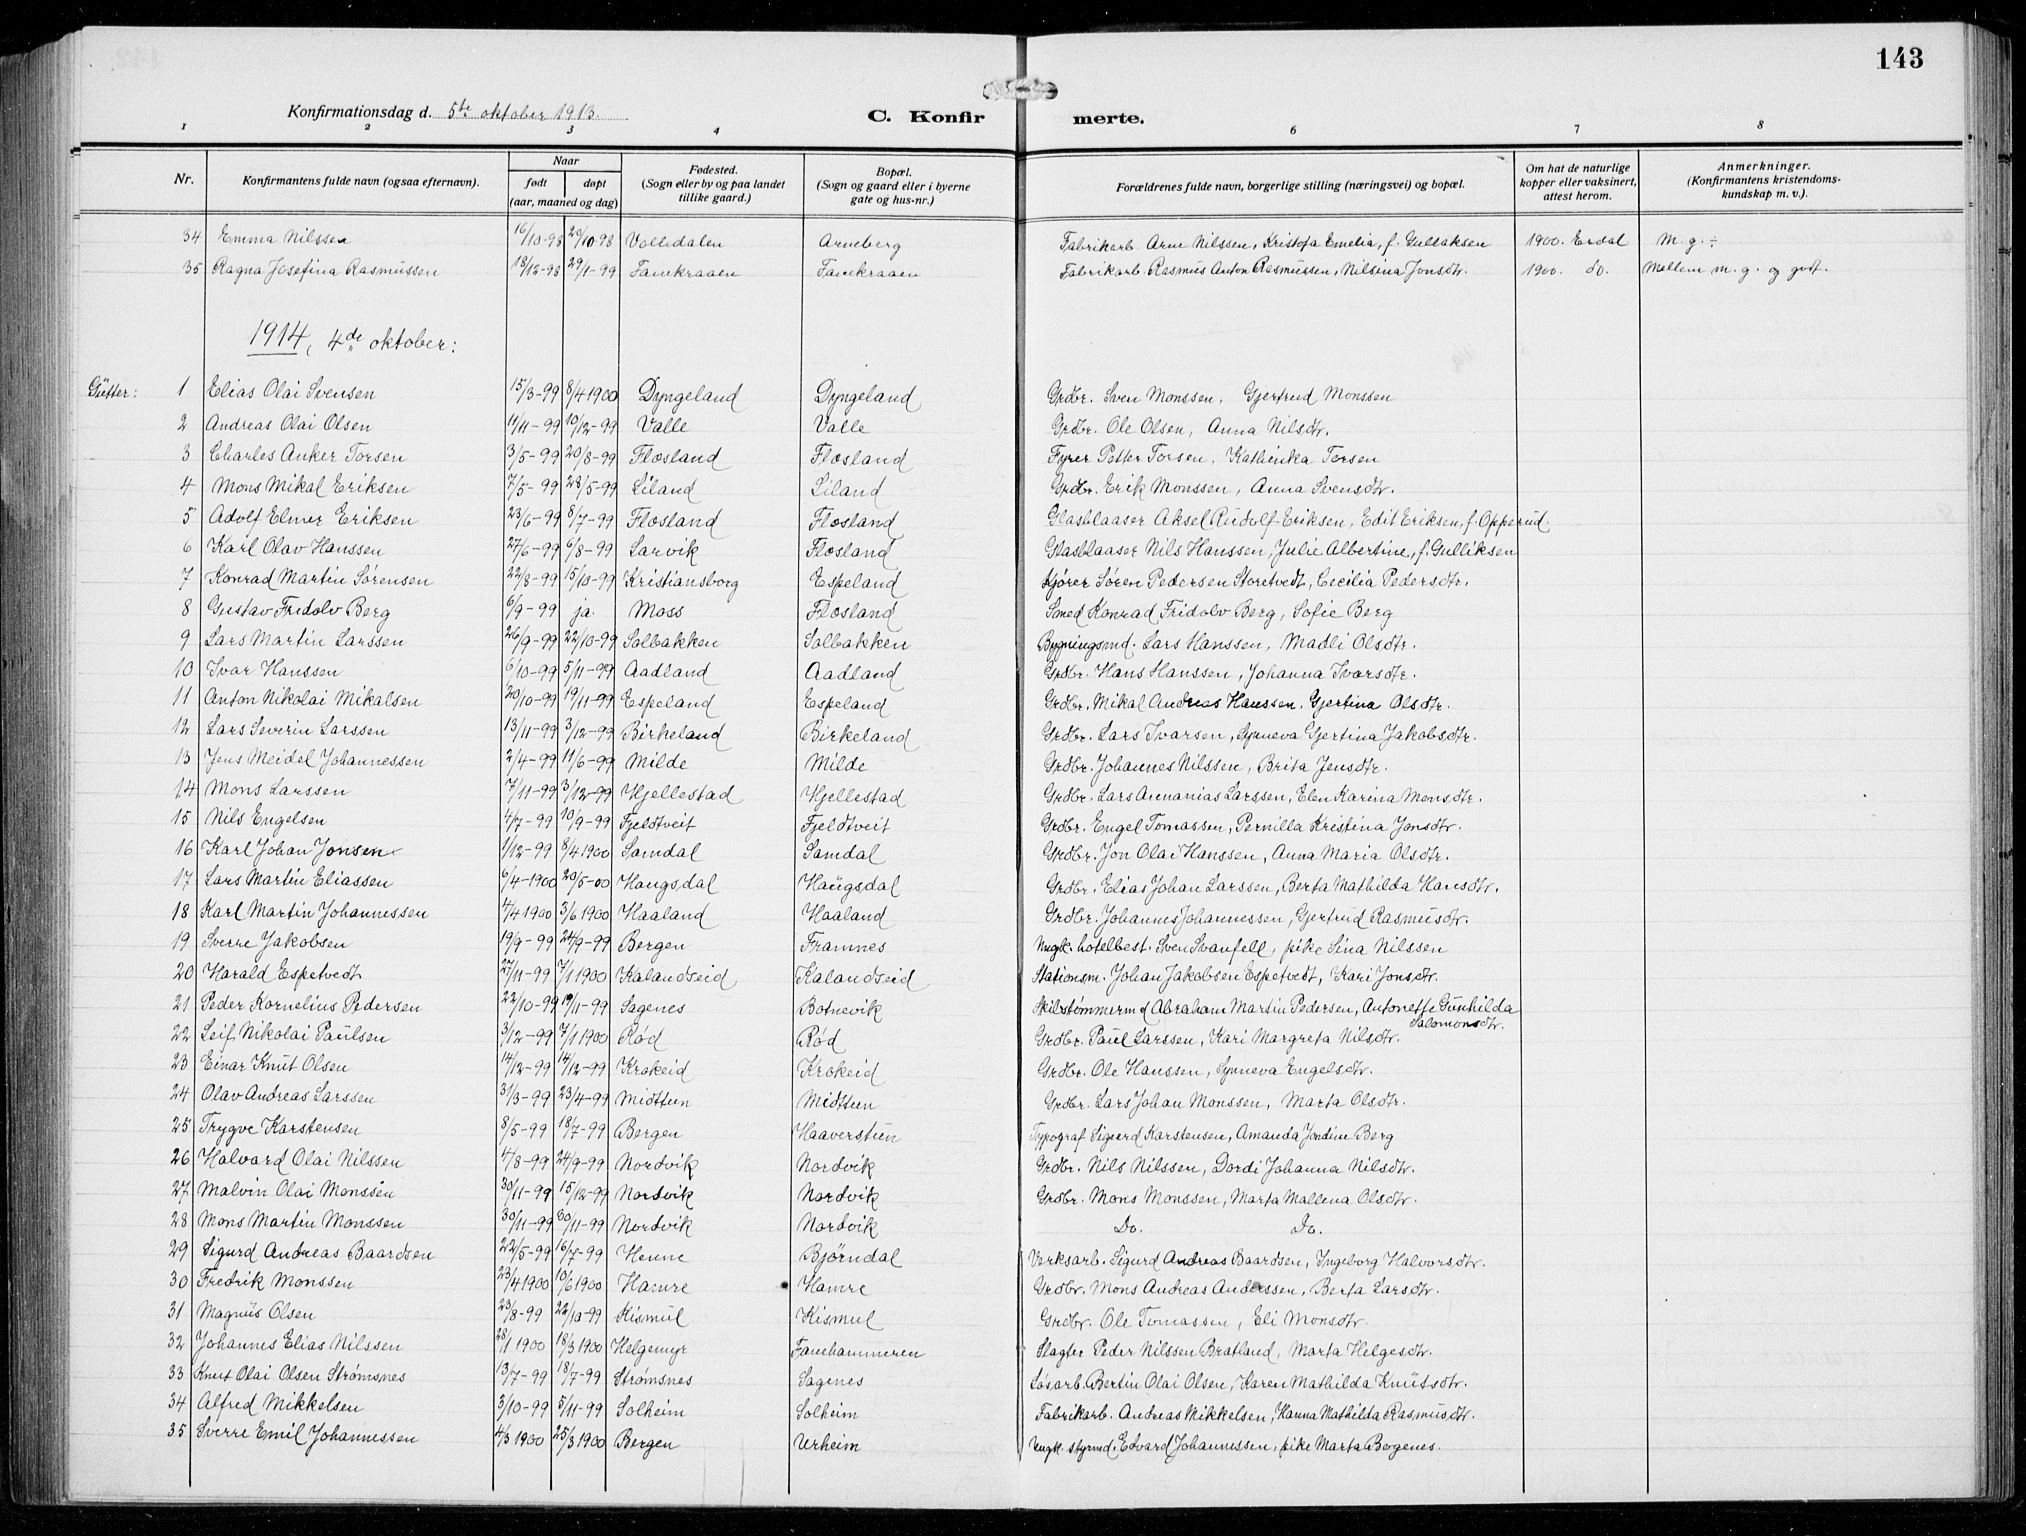 143
Konfirmationsdag d. 5te oktober 1913.
C. Konfirmerte.
1 2 3 4 6 7 8
Nr. Konfirmantens fulde navn (ogsaa efternavn). Naar født døpt (aar, maaned og dag) Fødested. (Sogn eller by og paa landet tillike gaard.) Bopæl. (Sogn og gaard eller i byerne gate og hus-nr.) Forældrenes fulde navn, borgerlige stilling (næringsvei) og bopæl. Om hat de naturlige kopper eller vaksinert, attest herom. Anmerkninger. (Konfirmantens kristendoms-kundskap m. v.).
34 Emma Nilssen 16/10-98 29/10-98 Vollidalen Arneberg Fabrikarb. Arne Nilssen, Kristofa Emelia, f. Gullaksen 1900. Erdal M. g. ÷
35 Ragna Josefina Rasmussen 18/12-98 29/1-99 Fanekraaen Fanekraaen Fabrikarb. Rasmus Anton Rasmussen, Nilsina Jonsdtr. 1900. do. Mellem m. g. og godt.
1914, 4de oktober:
Gutter: 1 Elias Olai Svensen 15/3-99 8/4 1900 Dyngeland Dyngeland Grdbr. Sven Monssen, Gjertrud Monssen
2 Andreas Olai Olsen 11/11-99 10/12-99 Valle Valle Grdbr. Ole Olsen, Anna Nilsdtr.
3 Charles Anker Torsen 3/5-99 20/8-99 Flæsland Flæsland Fyrer Petter Torsen, Kathinka Torsen
4 Mons Mikal Eriksen 7/5-99 28/5-99 Liland Liland Grdbr. Erik Monssen, Anna Svensdtr.
5 Adolf Elmer Eriksen 23/6-99 8/7-99 Flæsland Flæsland Glasblaaser Aksel Rudolf Eriksen, Edit Eriksen, f. Opperud.
6 Karl Olav Hanssen 27/6-99 6/8-99 Larvik Flæsland Glasblaaser Nils Hanssen, Julie Albertine, f. Gulliksen
7 Konrad Martin Sørensen 22/8-99 15/10-99 Kristiansborg Espeland Kjører Søren Pedersen Storetvedt, Cecilia Pedersdtr.
8 Gustav Fridolv Berg 6/9-99 ja. Moss Flæsland Smed Konrad Fridolv Berg, Sofie Berg
9 Lars Martin Larssen 26/9-99 22/10-99 Solbakken Solbakken Bygningsmd. Lars Hanssen, Madli Olsdtr.
10 Ivar Hanssen 6/10-99 5/11-99 Aadland Aadland Grdbr. Hans Hanssen, Johanna Ivarsdtr.
11 Anton Nikolai Mikalsen 20/10-99 19/11-99 Espeland Espeland Grdbr. Mikal Andreas Hanssen, Gjertina Olsdtr.
12 Lars Severin Larssen 13/11-99 3/12-99 Birkeland Birkeland Grdbr. Lars Ivarsen, Synneva Gjertina Jakobsdtr.
13 Jens Meidel Johannessen 2/4-99 11/6-99 Milde Milde Grdbr. Johannes Nilssen, Brita Jensdtr.
14 Mons Larssen 7/11-99 3/12-99 Hjellestad Hjellestad Grdbr. Lars Annanias Larssen, Elen Karina Monsdtr.
15 Nils Engelsen 4/7-99 10/9-99 Fjeldtveit Fjeldtveit Grdbr. Engel Tomassen, Pernilla Kristina Jonsdtr.
16 Karl Johan Jonsen 1/12-99 8/4 1900 Samdal Samdal Grdbr. Jon Olai Hanssen, Anna Maria Olsdtr.
17 Lars Martin Eliassen 6/4-1900 20/5-00 Haugsdal Haugsdal Grdbr. Elias Johan Larssen, Berta Mathilda Hansdtr.
18 Karl Martin Johannessen 4/4 1900 3/6 1900 Haaland Haaland Grdbr. Johannes Johannessen, Gjertrud Rasmusdtr.
19 Sverre Jakobsen 19/9-99 24/9-99 Bergen Framnes Ungk. hotelbest. Sven Svanfell, pike Sina Nilssen
20 Harald Espetvedt 27/11-99 7/1 1900 Kalandseid Kalandseid Stationsm. Johan Jakobsen Espetvedt, Kari Jonsdtr.
21 Peder Kornelius Pedersen 22/10-99 19/11-99 Sagenes Botnevik Skibstømmermd Abraham Martin Pedersen, Antonette Gunhilda Salomonsdtr.
22 Leif Nikolai Paulsen 3/12-99 7/1 1900 Rød Rød Grdbr. Paul Larssen, Kari Margreta Nilsdtr.
23 Einar Knut Olsen 14/12-99 14/12-99 Krokeid Krokeid Grdbr. Ole Hanssen, Synneva Engelsdtr.
24 Olav Andreas Larssen 31/3-99 23/4-99 Midttun Midttun Grdbr. Lars Johan Monssen, Marta Olsdtr.
25 Trygve Karstensen 8/5-99 18/7-99 Bergen Haaverstun Typograf Sigurd Karstensen, Amanda Jondine Berg
26 Halvard Olai Nilssen 4/8-99 24/9-99 Nordvik Nordvik Grdbr. Nils Nilssen, Dordi Johanna Nilsdtr.
27 Malvin Olai Monssen 30/11-99 15/12-99 Nordvik Nordvik Grdbr. Mons Monssen, Marta Mallena Olsdtr.
28 Mons Martin Monssen 30/11-99 30/11-99 Nordvik Nordvik Do. Do.
29 Sigurd Andreas Baardsen 22/5-99 16/7-99 Henne Bjørndal Verksarb. Sigurd Andreas Baardsen, Ingeborg Halvorsdtr.
30 Fredrik Monssen 23/4 1900 10/6 1900 Hamre Hamre Grdbr. Mons Andreas Anderssen, Berta Larsdtr.
31 Magnus Olsen 23/8-99 22/10-99 Kismul Kismul Grdbr. Ole Tomassen, Eli Monsdtr.
32 Johannes Elias Nilssen 28/1 1900 18/3 1900 Helgemyr Fanehammeren Slagter Peder Nilssen Bratland, Marta Helgesdtr.
33 Knut Olai Olsen Strømsnes 13/7-99 18/7-99 Strømsnes Sagenes Løsarb. Bertin Olai Olsen, Karen Mathilda Knutsdtr.
34 Alfred Mikkelsen 3/10-99 5/11-99 Solheim Solheim Fabrikarb. Andreas Mikkelsen, Hanna Mathilda Rasmusdtr.
35 Sverre Emil Johannessen 4/3 1900 25/3 1900 Bergen Urheim Ungk. styrmd. Edvard Johannessen, pike Marta Bogenes.